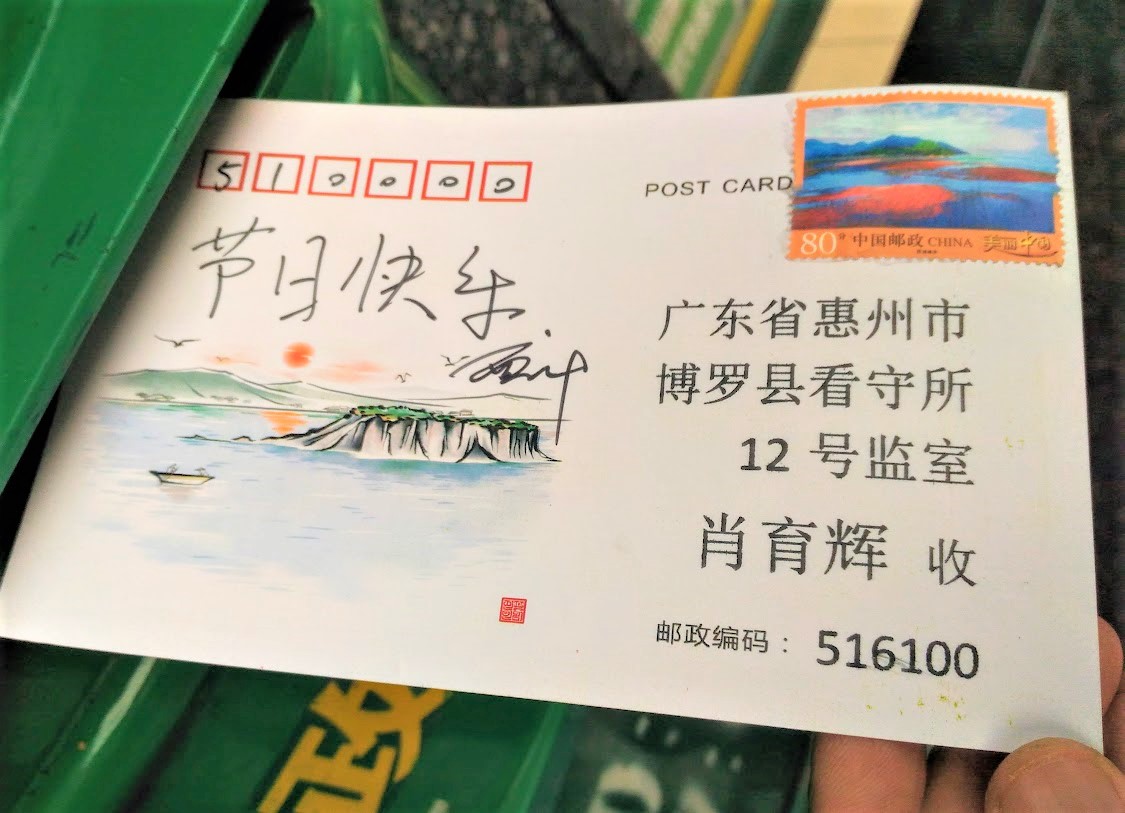 510000
POST CARD
80分 中国邮政 CHINA 美丽中国
节日快乐
广东省惠州市
博罗县看守所
12 号监室
肖育辉 收
邮政编码: 516100